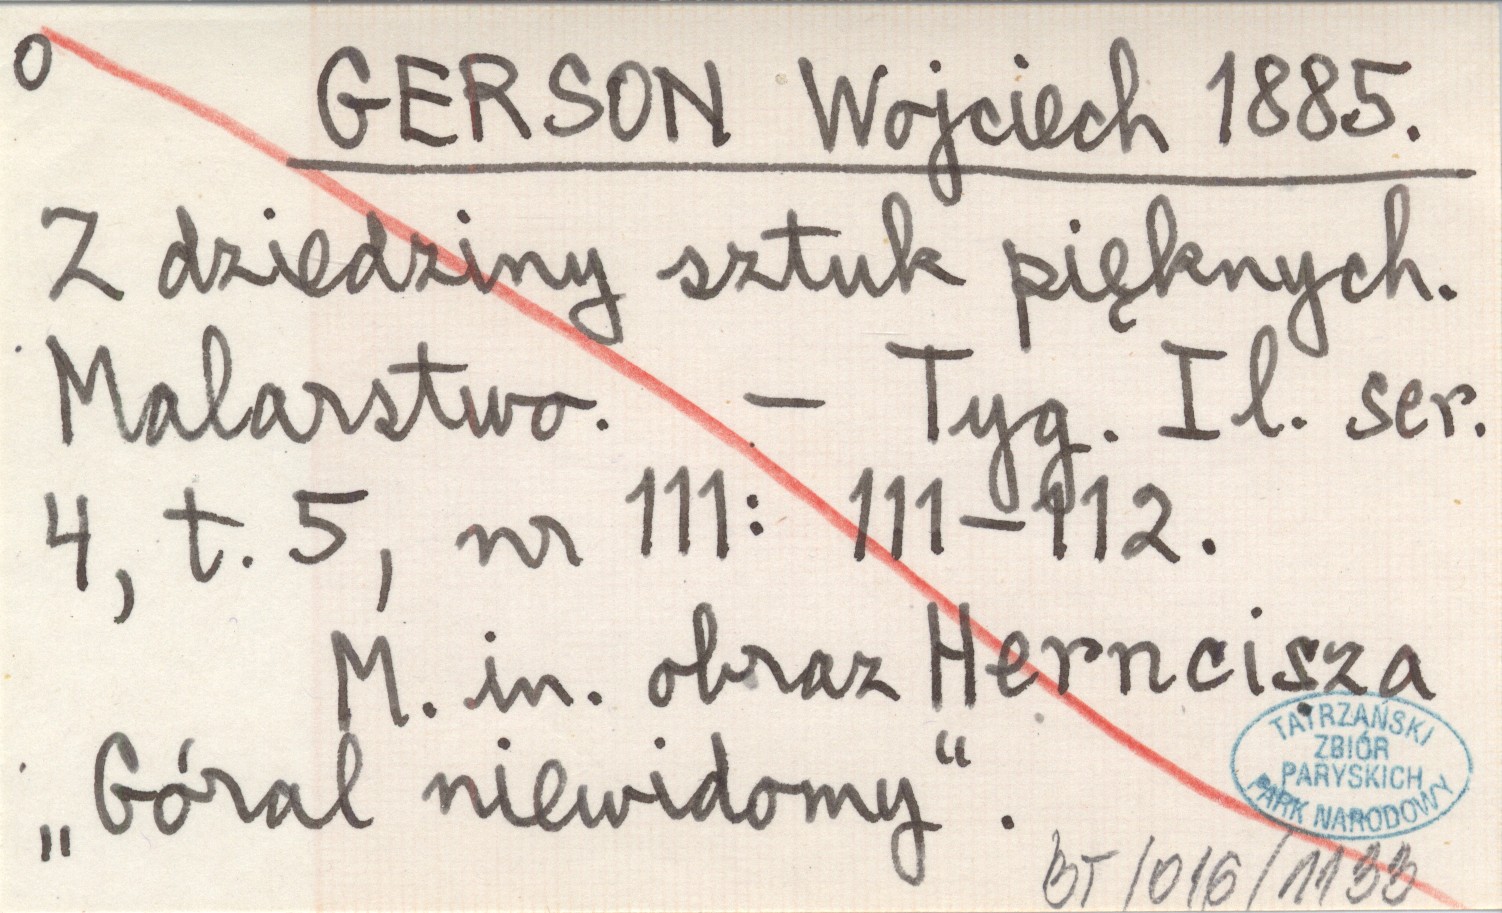 O
GERSON Wojciech 1885.
Z dziedziny sztuk pięknych.
Malarstwo. – Tyg. Il. ser.
4, t. 5, nr 111: 111–112.
M. in. obraz Herncisza
„Góral niewidomy“.
TATRZAŃSKI
ZBIÓR
PARYSKICH
PARK NARODOWY
BT/016/1133